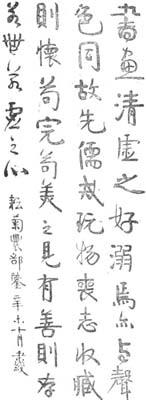 書畫清虛之好溺焉亦与聲
色同故先儒戒玩物喪志收藏
則懷苟完苟美之見有善則存
若無若虛之心
耘菊農部鑒辛未十月